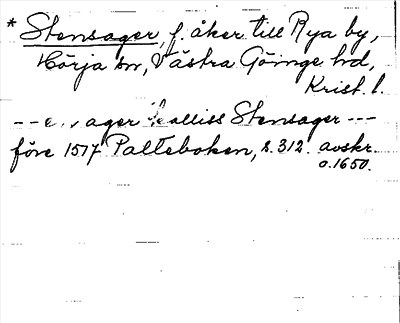 * Stensager, f. åker till Rya by,
Hörja sn, Västra Göinge hd,
Krist. l.
--- ager kalliss Stensager ---
före 1517 Palteboken, s. 312. avskr.
o. 1650.